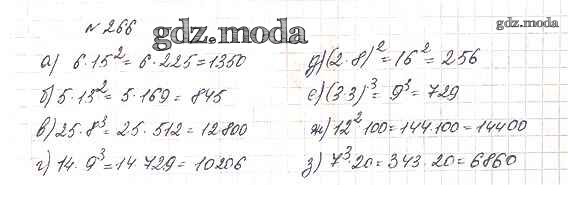 № 266
gdz.moda
gdz.moda
а) 6·15²= 6·225=1350
б) 5·13²= 5·169= 845
в) 25·8³= 25·512= 12800
г) 14·9³=14·729= 10206
д) (2·8)²=16²= 256
е) (3·3)³= 9³= 729
ж) 12²·100=144·100=14400
з) 7³·20=343·20=6860